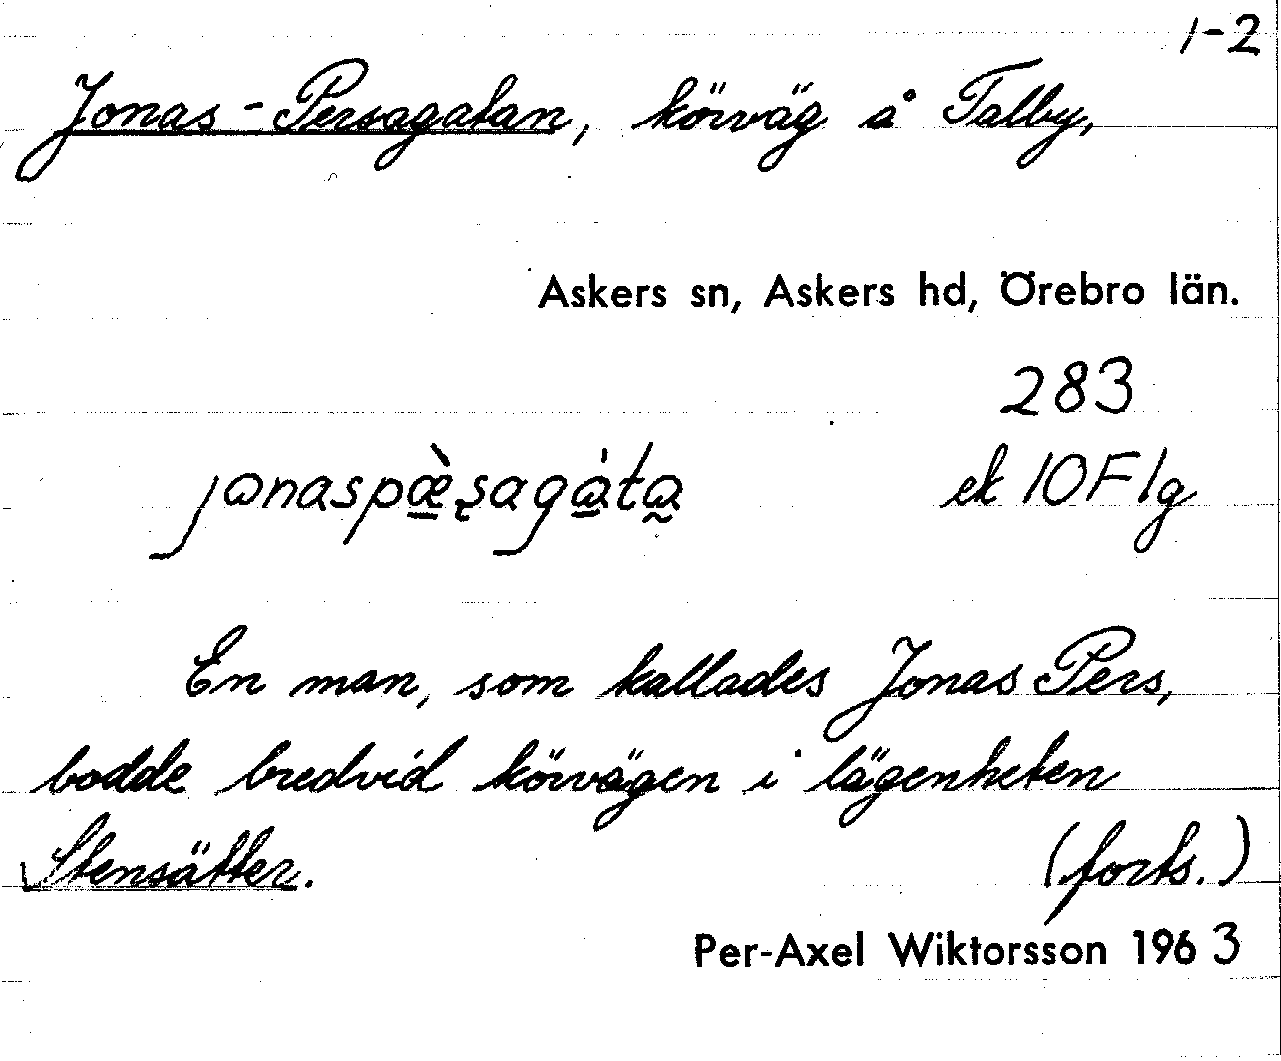 1-2
Jonas-Persagatan, körväg å Talby,
Askers sn, Askers hd, Örebro län.
283
jonaspæ̀sagáta ek 10F1g
En man, som kallades Jonas Pers,
bodde bredvid körvägen i lägenheten
Stensätter. (forts.)
Per-Axel Wiktorsson 1963